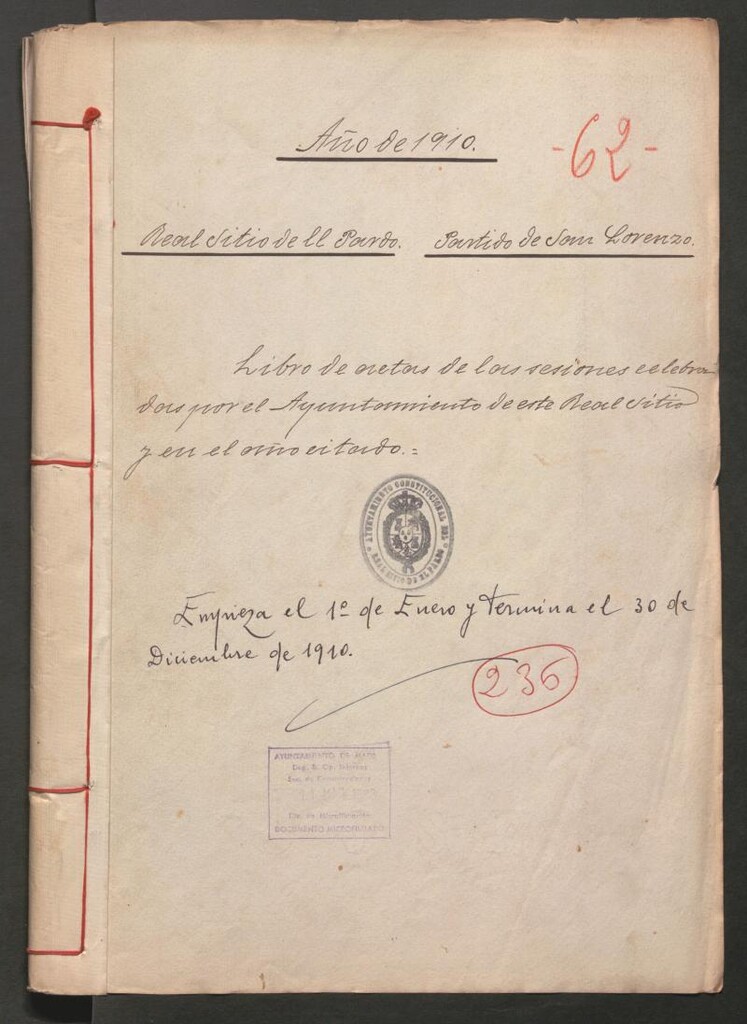 Año de 1910.
-62-
Real Sitio de El Pardo. Partido de San Lorenzo.
Libro de actas de las sesiones celebra
das por el Ayuntamiento de este Real Sitio
y en el año citado.=
AYUNTAMIENTO CONSTITUCIONAL DEL
REAL SITIO DE EL PARDO
Empieza el 1º de Enero y termina el 30 de
Diciembre de 1910.
236
AYUNTAMIENTO DE
DOCUMENTO MICROFILMADO